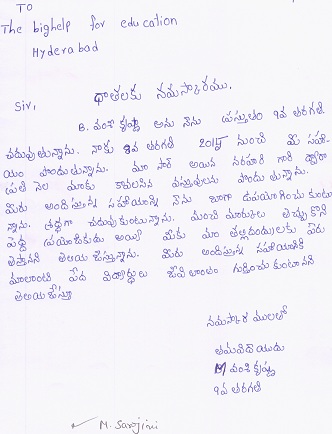 TO
The bighelp for education
Hyderabad
దాతలకు నమస్కారము.
Sir,
B. వంశీ కృష్ణ అను నేను ప్రస్తుతం 9వ తరగతి
చదువుతున్నాను. నాకు 8వ తరగతి 2015 నుంచి మీ సహా
యం పొందుతున్నాను. మా సార్ అయిన నరహరి గారి ద్వారా
ప్రతి నెల మాకు కావలసిన వస్తువులను పొందుతున్నాను.
మీరు అందిస్తున్న సహాయాన్ని నేను బాగా ఉపయోగించు కుంటు
న్నాను. శ్రద్ధగా చదువుకుంటున్నాను. మంచి మార్కులు తెచ్చుకొని
పెద్ద ప్రయోజకుడు అయ్యి మీకు మా తల్లిదండ్రులకు పేరు
తెస్తానని తెలియ చేస్తున్నాను. మీరు అందిస్తున్న సహాయానికి
మాలాంటి పేద విద్యార్థులు జీవితాంతం గుర్తించు కుంటానని
తెలియజేస్తూ
నమస్కారములతో
తమవిధేయుడు
M వంశీ కృష్ణ
9వ తరగతి
M. Sarojini